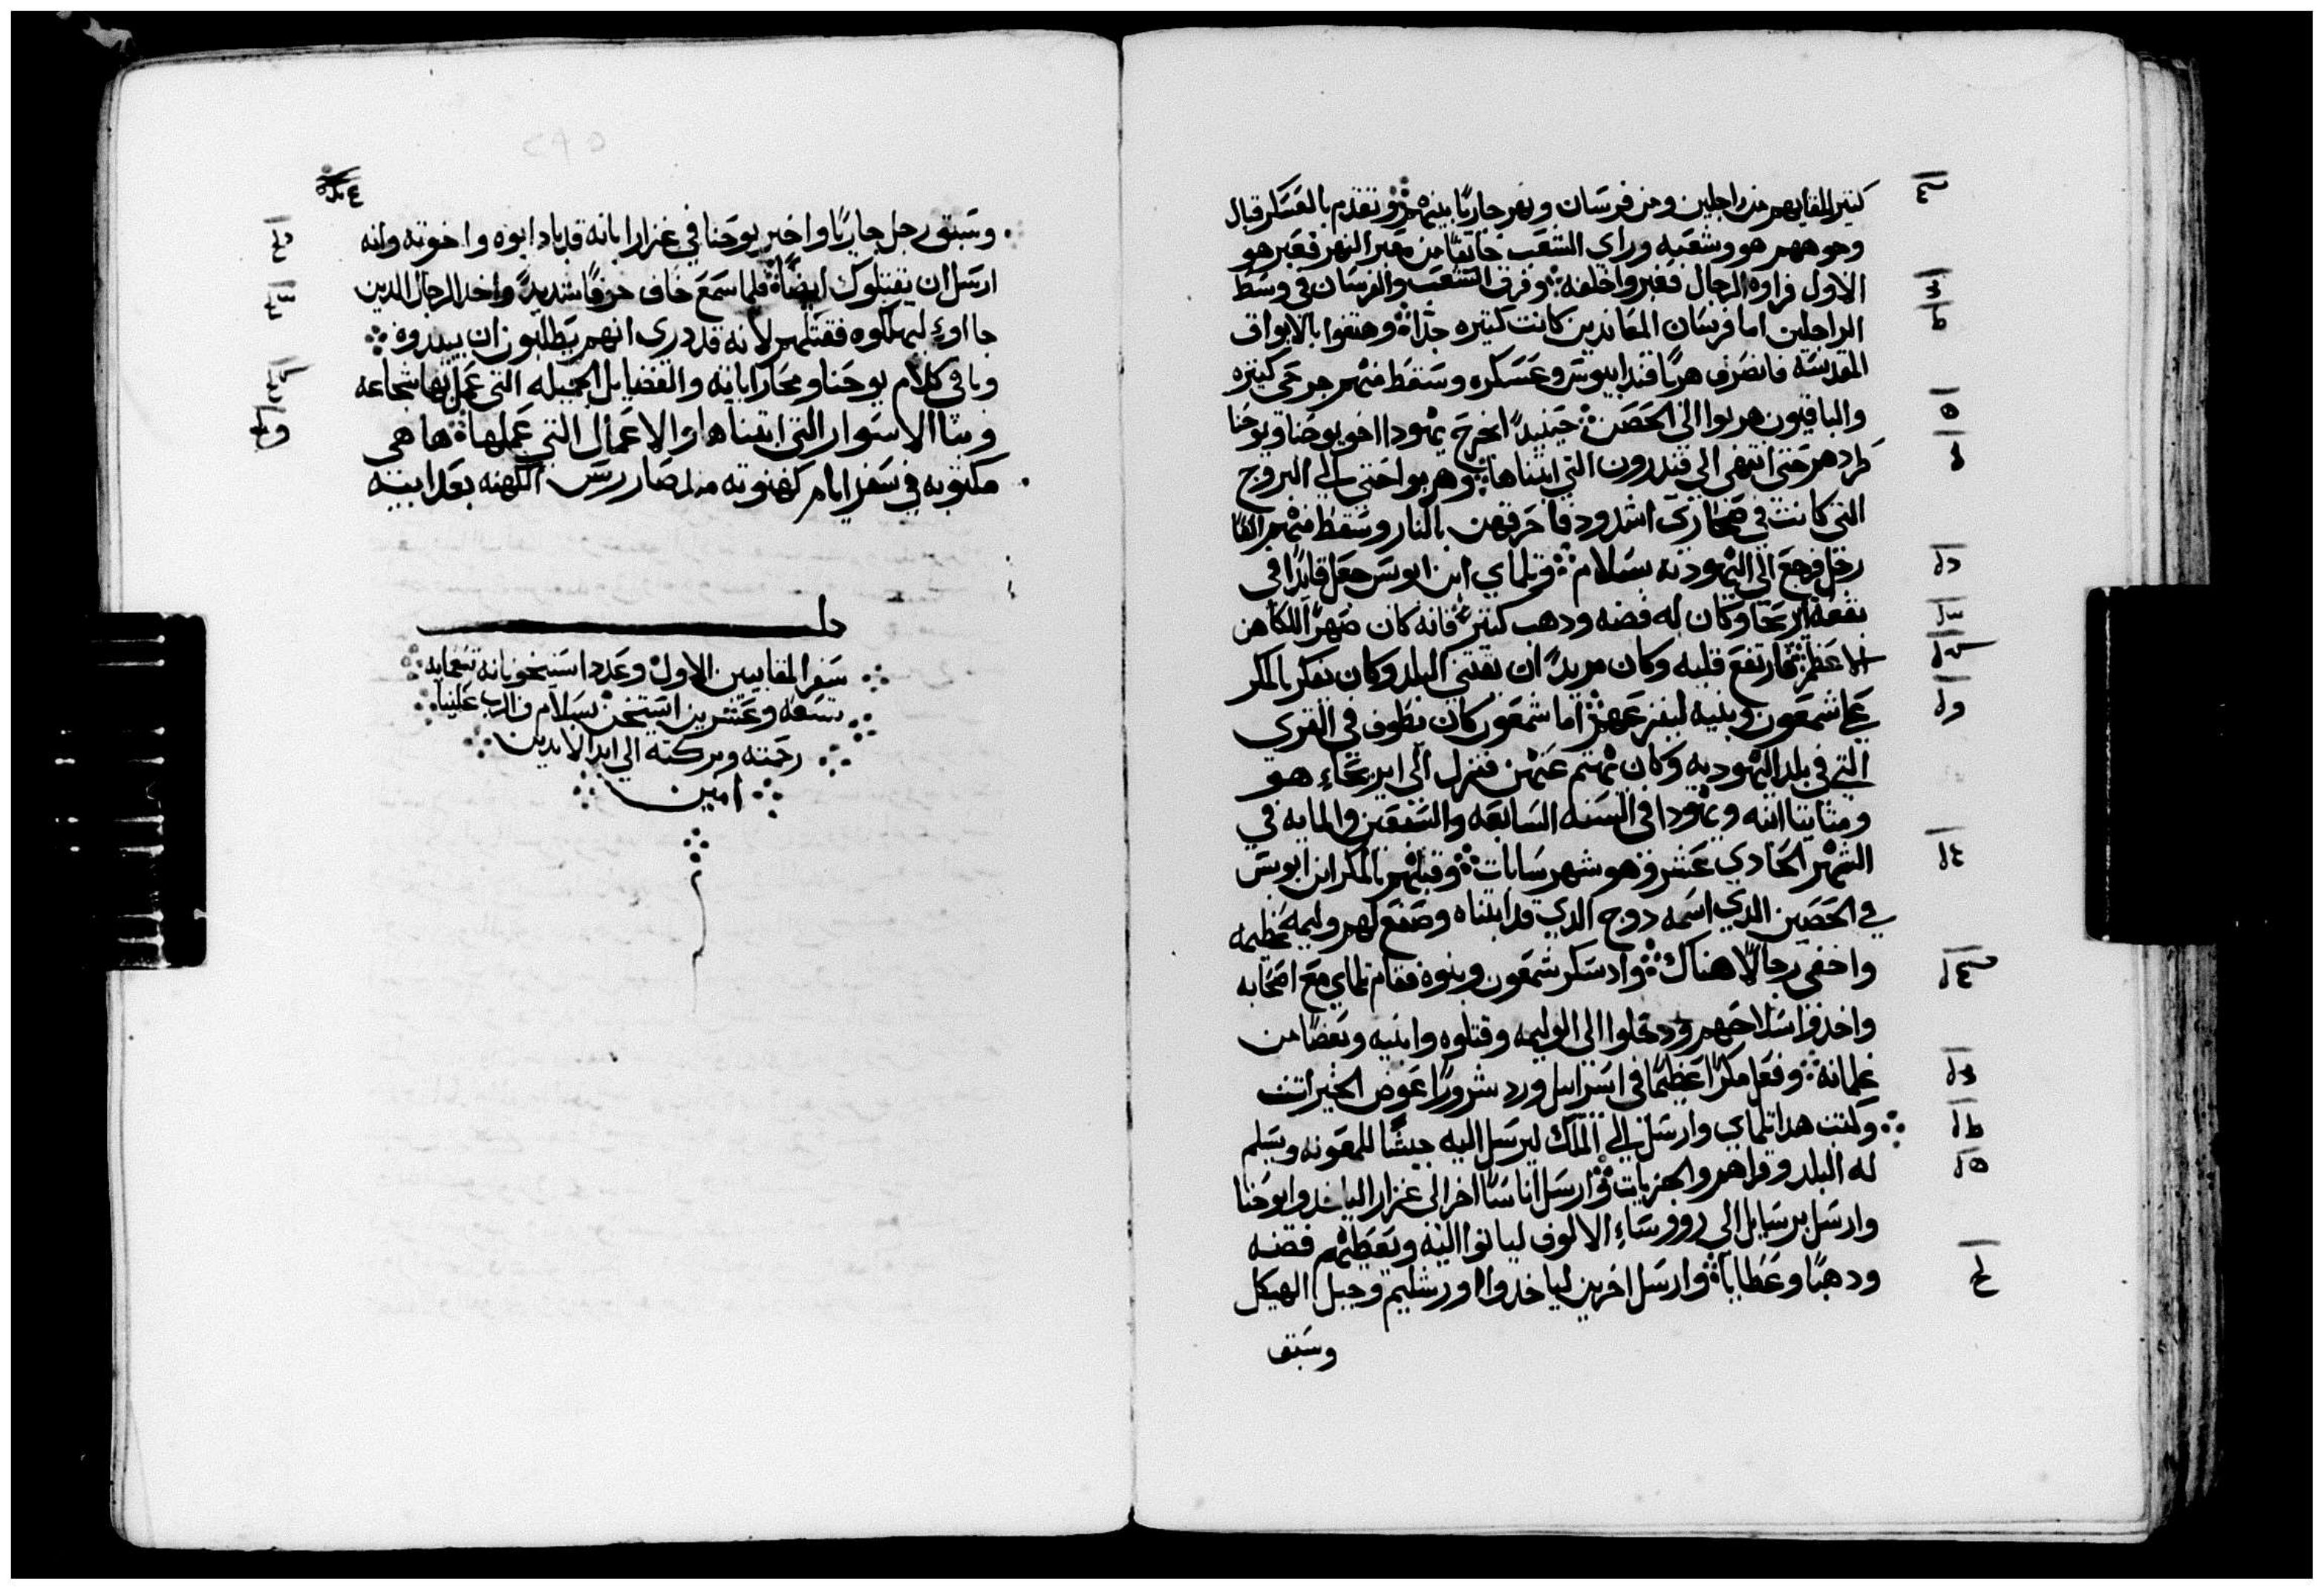 كثير للقايهم من راجلين ومن فرسان ونهر جاريًا بينهم وتقدم بالعسكر قبال
وجوههم هو وشعبه وراي الشعب خايفًا من معبر النهر فعبر هو
الاول فراوه الرجال فعبروا خلفه وفرق الشعب والفرسان في وسط
الراجلين اما فرسان المعاندين كانت كتيره جدًا وهتفوا بالابواق
المقدسه فانصرف هربًا قندابيوس وعسكره وسقط منهم جرحى كتيره
والباقيون هربوا الى الحصن حينيدً انجرح يهودا اخو يوحنا ويوحنا
طردهم حتى انتهى الي قندرون التي ابتناها وهربوا حتى الي البروج
التي كانت في صحاري اشدود فاحرقهن بالنار وسقط منهم الفا
رجل فرجع الى اليهوديه بسلام وتلماي ابن ابوس جعل قايدًا في
بقعة اريحا وكان له فضه ودهب كتير فانه كان صهرًا للكاهن
الاعظم فارتفع قلبه وكان مريدً ان يقتني البلد وكان يفكر بالمكر
على شمعون وبنيه ليفزعهم اما شمعون كان يطوف في القري
التي في بلد اليهوديه وكان يهتم عنهن فنزل الى ايريحاء هو
ومتاتيا ابنه ويهودا في السنه السابعه والسبعين والمايه في
الشهر الحادي عشر وهو شهر سابات وقبلهم بالمكر ابن ابوس
في الحصين الدي اسمه دوح الدي قد ابتناه وصنع لهم وليمه عظيمه
واخفى رجالًا هناك واد سكر شمعون وبنوه فقام تلماي مع اصحابه
واخدوا سلاحهم ودخلوا الى الوليمه وقتلوه وابنيه وبعضًا من
غلمانه وفعل مكرًا عظيمًا في اسراييل ورد شرورًا عوض الخيرات
وكتب هدا تلماي وارسل الي الملك ليرسل اليه جيشًا للمعونه ويسلم
له البلد وقراهم والجزيات وارسل اناسًا اخر الى غزارا لياخدوا يوحنا
وارسل برسايل الي روورساء الالوف لياتوا اليه ويعطيهم فضه
ودهبًا وعطايا وارسل اخرين لياخدوا اورشليم وجبل الهيكل
وسبق
وسبق رجل جاريًا واخبر يوحنا في غزارا بانه قد باد ابوه واخوته وانه
ارسل ان يقتلوك ايضًا فلما سمع خاف خوفًا شديدً واخد الرجال الدين
جااوا ليهلكوه فقتلهم لانه قد درى انهم يطلبون ان يبيدوه
وباقي كلام يوحنا ومحاراباته والفضايل الجميله التي عمل بها شجاعه
وبنا الاسوار التي ابتناها والاعمال التي عملها ها هي
مكتوبه في سفر ايام كهنوته مند صار ريس الكهنه بعد ابيه
كمل
سفر المقابيين الاول وعدد استيخوناته تسعمايه
تسعه وعشرين استيخن بسلام من الرب علينا
رحمته وبركته الي ابد الابدين
امين